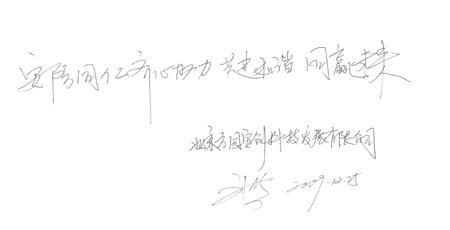 安防同仁齐心协力 共建和谐 同赢未来
北京方国宝创科技发展有限公司
2009.12.25